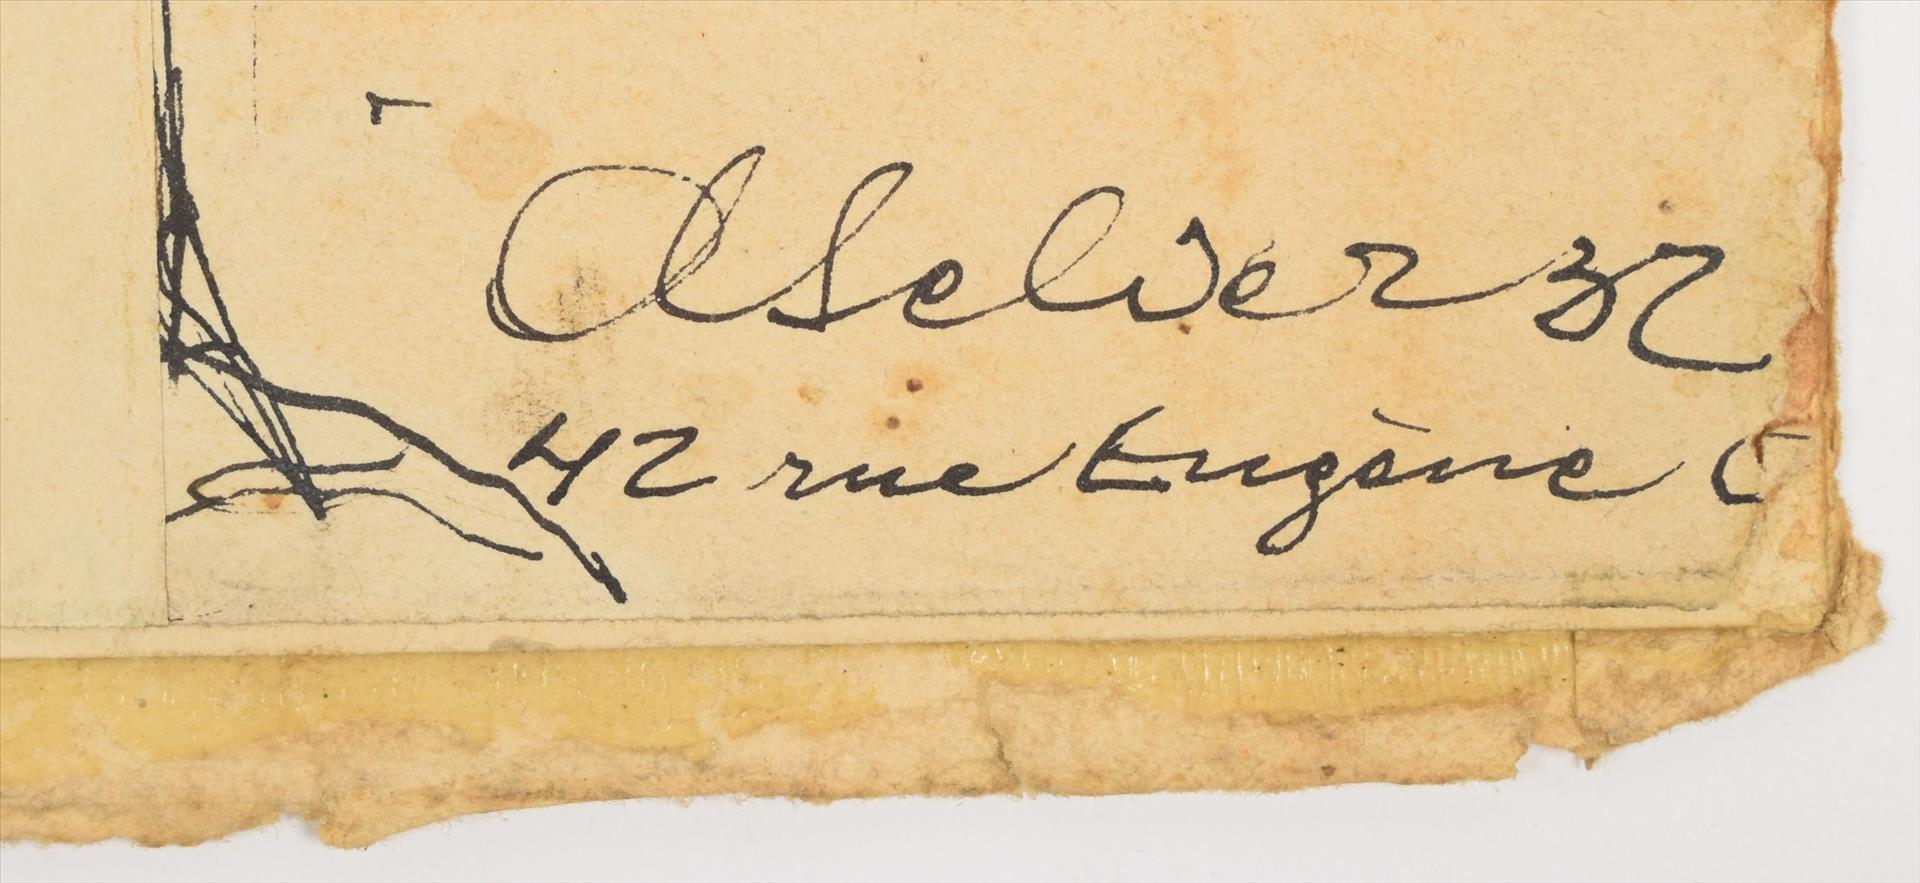 Aselverzr
42 rue Eugène C